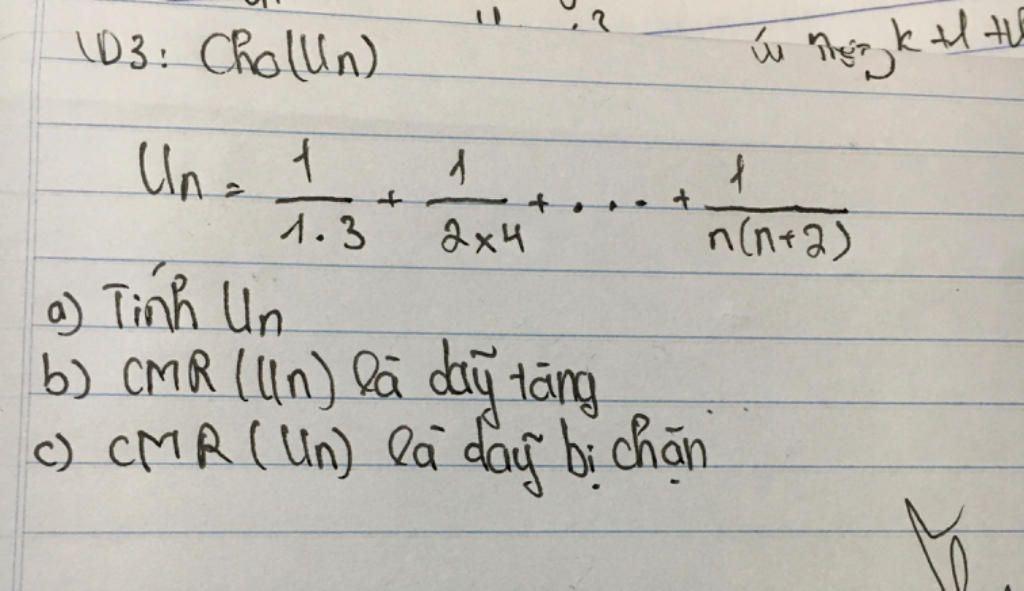 VD3: Cho (Un)
Un = 1/1.3 + 1/2x4 + .... + 1/n(n+2)
a) Tính Un
b) CMR (Un) là dãy tăng
c) CMR (Un) là dãy bị chặn